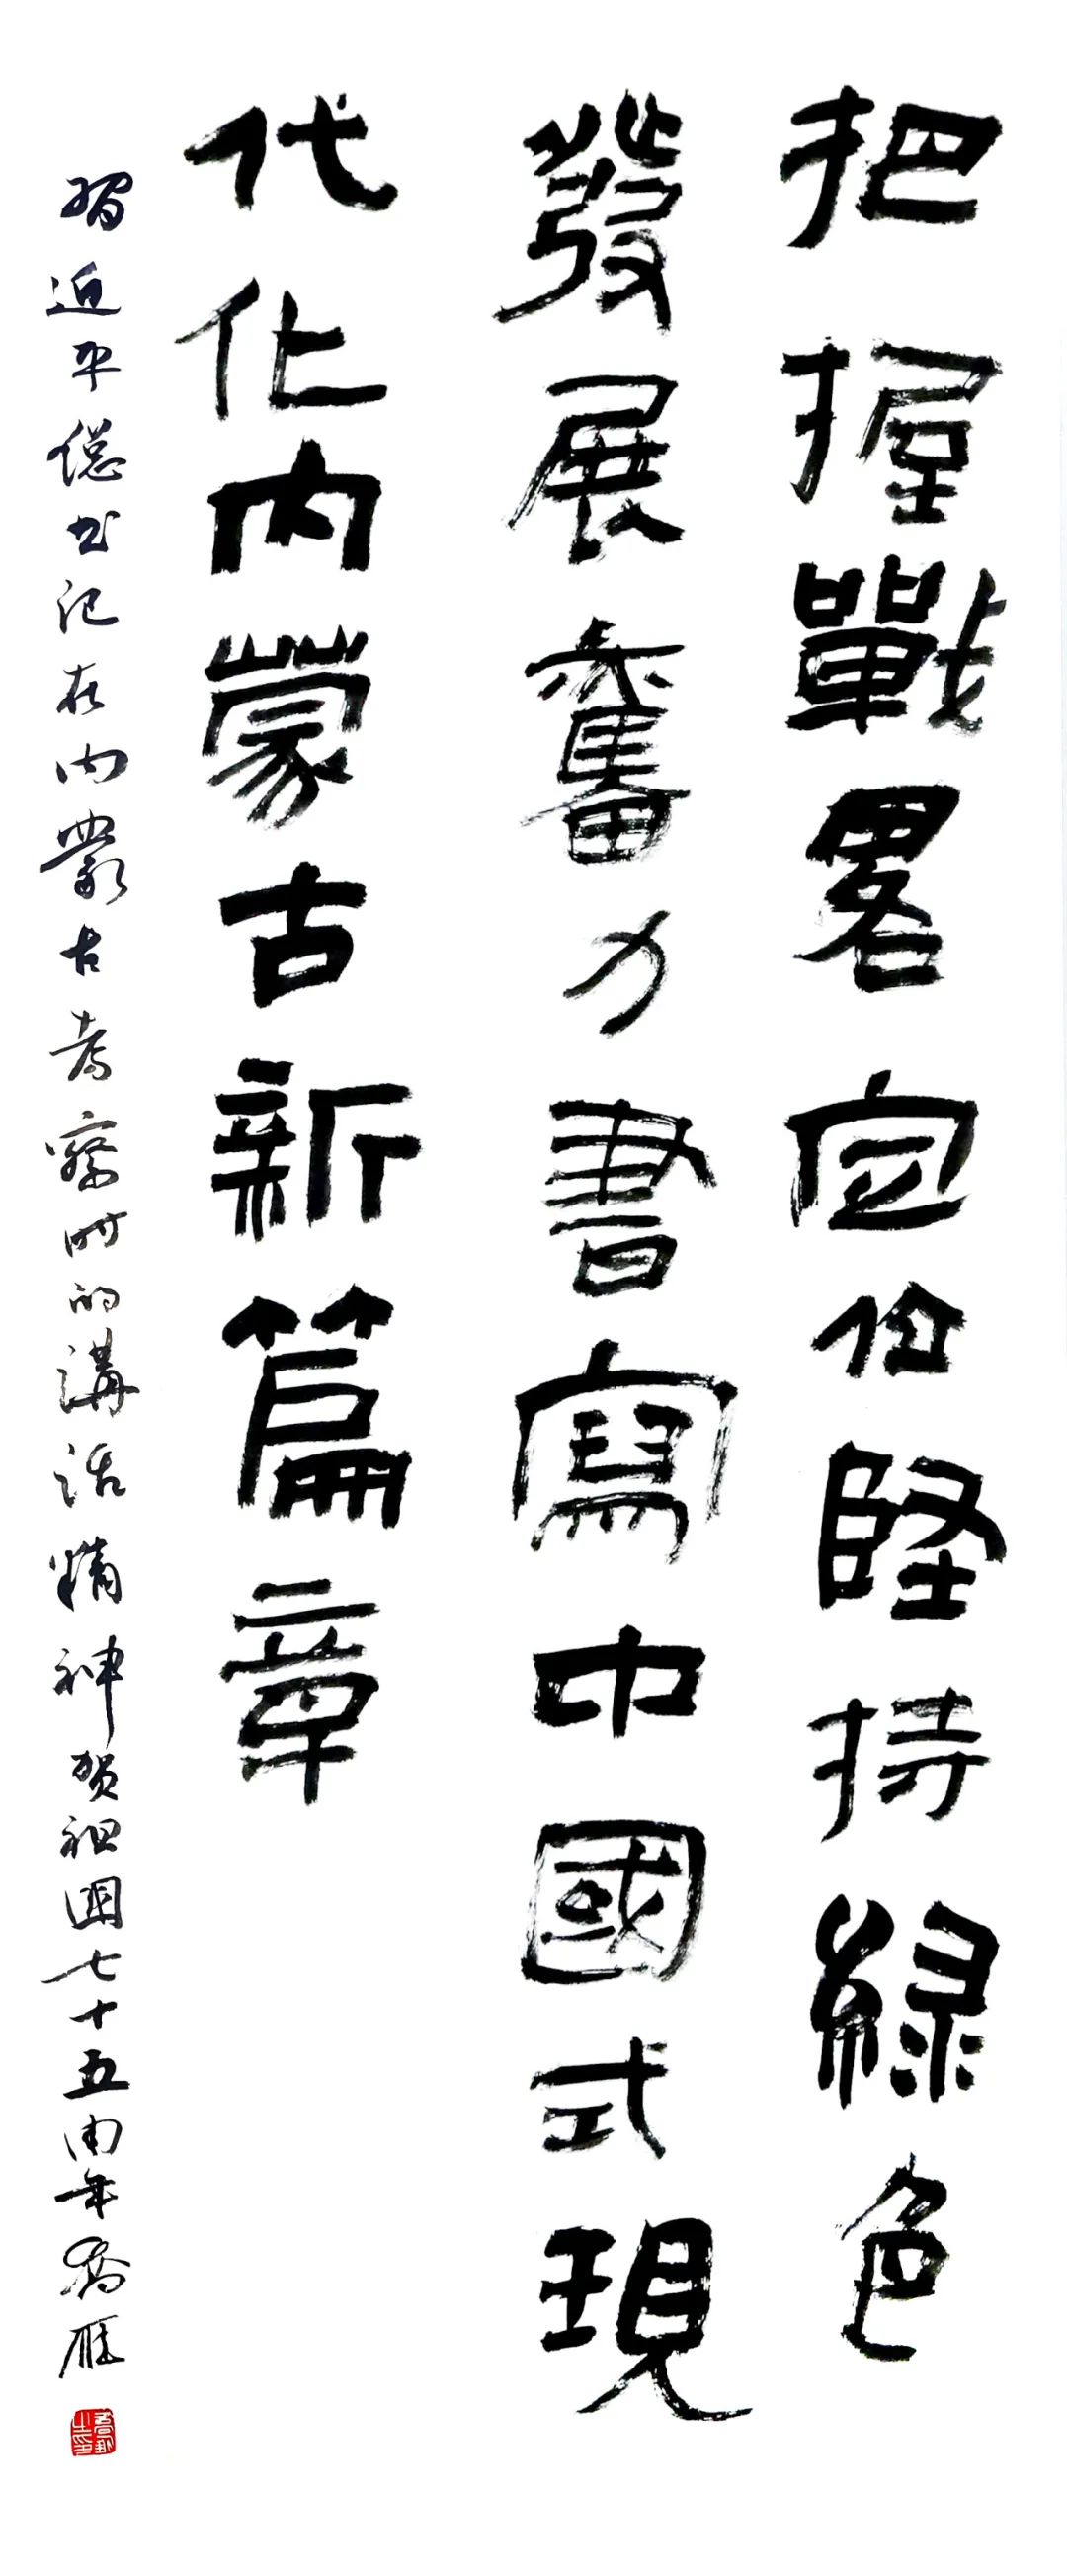 把握戰畧定位堅持緑色
發展奮力書寫中國式現
代化内蒙古新篇章
習近平總书记在内蒙古考察时的講话精神贺祖國七十五周年喬雁